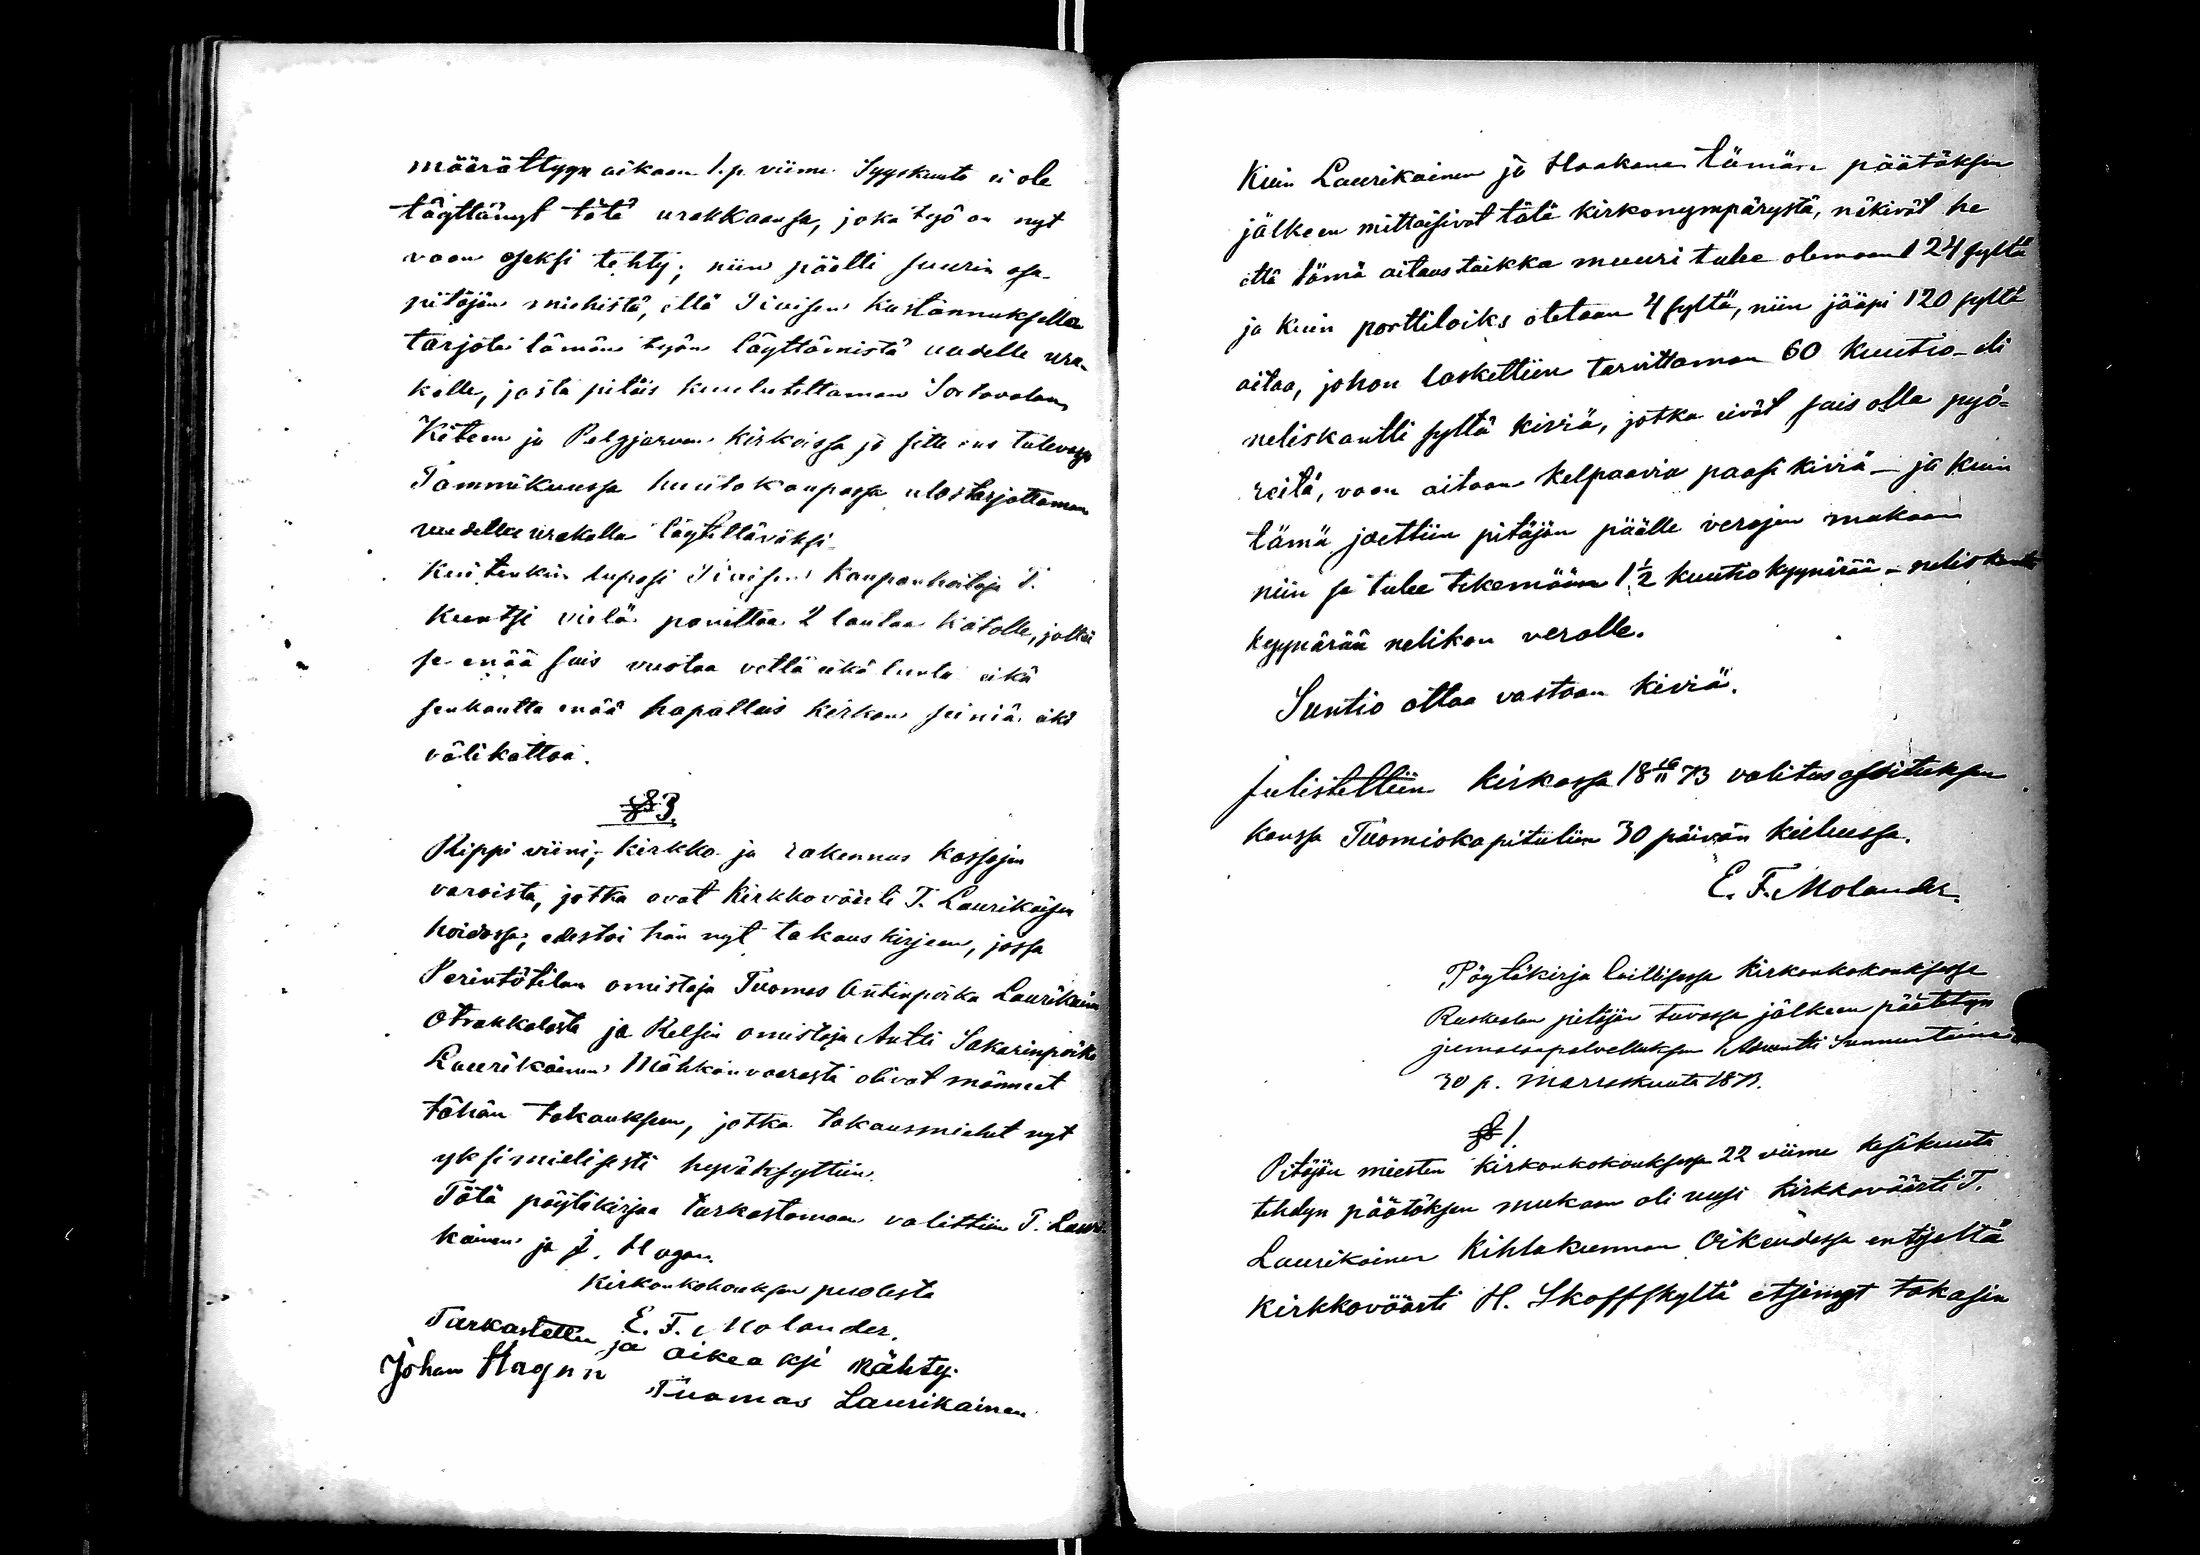 määrättyyn aikaan 1. p. viime Syyskuuta ei ole
täyttänyt tätä urakkaansa, joka työ on nyt
vaan osaksi tehty; niin päätti suurin osa
pitäjän miehistä, että Tiaisen kustannuksella
tarjota tämän työn täyttämistä uudelle ura-
kalle, josta pitäis kuulutettaman Sortavalan,
Kiteen ja Pelgjärven kirkoissa ja sitte ens tulevassa
Tammikuussa huutokaupassa ulostarjottaman
uudellee urakalle täytettäväksi.
Kuitenkin lupasi Tiaisen kaupanhoitaja T.
Kuntsi vielä panettaa 2 lautaa katolle, jottei
se enää sais vuotaa vettä eikä lunta eikä
senkautta enää hapattais kirkon seiniä eikä
välikattoa.
§ 3.
Rippi viini-, kirkko- ja rakennus kassojen
varoista, jotka ovat Kirkkoväärti T. Laurikaisen
hoidossa, edestoi hän nyt takauskirjeen, jossa
Perintötilan omistaja Tuomas Antinpoika Laurikainen
Otrakkalasta ja Relsin omistaja Antti Sakarinpoika
Laurikainen Mähkönvaarasta olivat männeet
tähän takaukseen, jotka takausmiehet nyt
yksimielisesti hyväksyttiin.
Tätä pöytäkirjaa tarkastamaan valittiin T. Lauri-
kainen ja J. Hagan.
Kirkonkokouksen puolesta
E. F. Molander.
Tarkastettu ja oikea ksi nähty.
Johan Hagan
Tuomas Laurikainen
Kuin Laurikainen ja Haakana tämän päätöksen
jälkeen mittaisivat tätä kirkonympärystä, näkivät he
että tämä aitaus taikka muuri tulee olemaan 124 syltä
ja kuin porttiloiks otetaan 4 syltä, niin jääpi 120 syltä
aitaa, johon laskettiin tarvittaman 60 kuutio- eli
neliskantti syltä kiviä, jotka eivät sais olla pyö-
reitä, vaan aitaan kelpaavia paasi kiviä – ja kuin
tämä jaettiin pitäjän päälle verojen mukaan
niin se tulee tekemään 1 1/2 kuutio kyynärää – neliskantti
kyynärää nelikon verolle.
Suntio ottaa vastaan kiviä.
Julistettiin kirkossa 18 16/11 73 valitusosoituksen
kanssa Tuomiokapituliin 30 päivän kuluessa.
E. F. Molander.
Pöytäkirja laillisessa Kirkonkokouksessa
Ruskealan pitäjän tuvassa jälkeen päätetyn
jumalanpalvelluksen Adventti Sunnuntaina
30 p. Marraskuuta 1873.
§ 1.
Pitäjän miesten kirkonkokouksessa 22 viime kesäkuuta
tehdyn päätöksen mukaan oli uusi kirkkoväärti T.
Laurikainen Kihlakunnan Oikeudessa entiseltä
kirkkoväärti H. Skoffskyltä etsinyt takasin